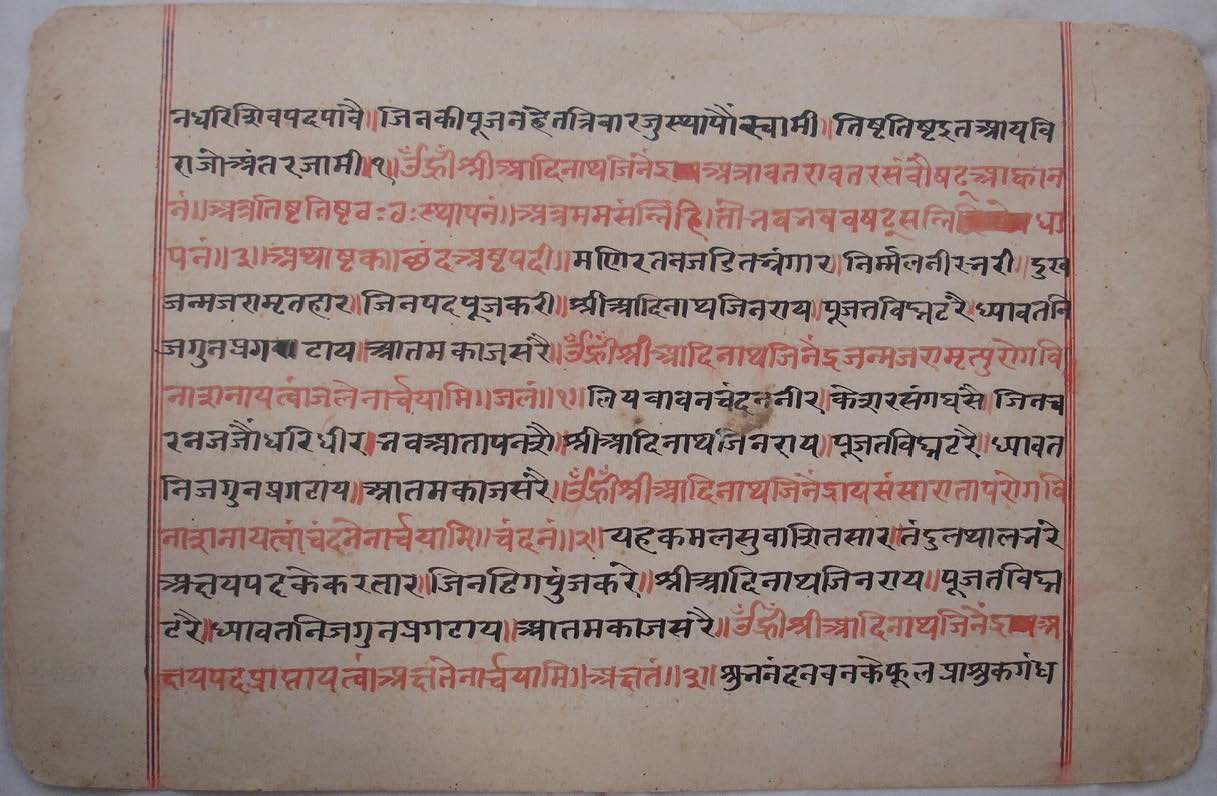 नधरिशिवपदपावै॥जिनकीपूजनहेतत्रिवारजुस्थापौंस्वामी॥तिष्टतिष्टइतआयवि
राजोअंतरजामी॥१॥ॐह्रीँश्रीआदिनाथजिनेंद्र अत्रावतरावतरसंवौषट्आह्वान
नं॥अत्रतिष्टतिष्टठःठःस्थापनं॥अत्रममसंन्निहितोभवभववषट्सन्नि धा
पनं॥३॥अथाष्टक॥छंदअष्टपदी॥मणिरतनजडितभ्रंगार॥निर्म्मलनीरभरी॥दुख
जन्मजरामृतहार॥जिनपदपूजकरी॥श्रीआदिनाथजिनराय॥पूजतविघ्नटरै॥ध्यावतनि
जगुनप्रग टाय॥आतमकाजसरै॥ॐह्रीँश्रीआदिनाथजिनेंद्रजन्मजरामृत्युरोगवि
नाशनायत्वांजलेनार्चयामि॥जलं॥१॥लियवावनचंदननीर॥केशरसंगघसै॥जिनच
रनजजौंधरिधीर॥भवआतापनसै॥श्रीआदिनाथजिनराय॥पूजतविघ्नटरै॥ध्यावत
निजगुनप्रगटाय॥आतमकाजसरै॥ॐह्रीँश्रीआदिनाथजिनेंद्रायसंसारातापरोगवि
नाशनायत्वांचंदनेनार्चयामि॥चंदनं॥२॥यहकमलसुवाशितसार॥तंदुलथालभरे
अक्षयपदकेकरतार॥जिनढिगपुंजकरे॥श्रीआदिनाथजिनराय॥पूजतविघ्न
टरै॥ध्यावतनिजगुनप्रगटाय॥आतमकाजसरै॥ॐह्रीँश्रीआदिनाथजिनेंद्र अ
क्षयपदप्राप्तायत्वांअक्षतेनार्चयामि॥अक्षतं॥३॥शुभनंदनवनकेफूलप्राशुकगंध